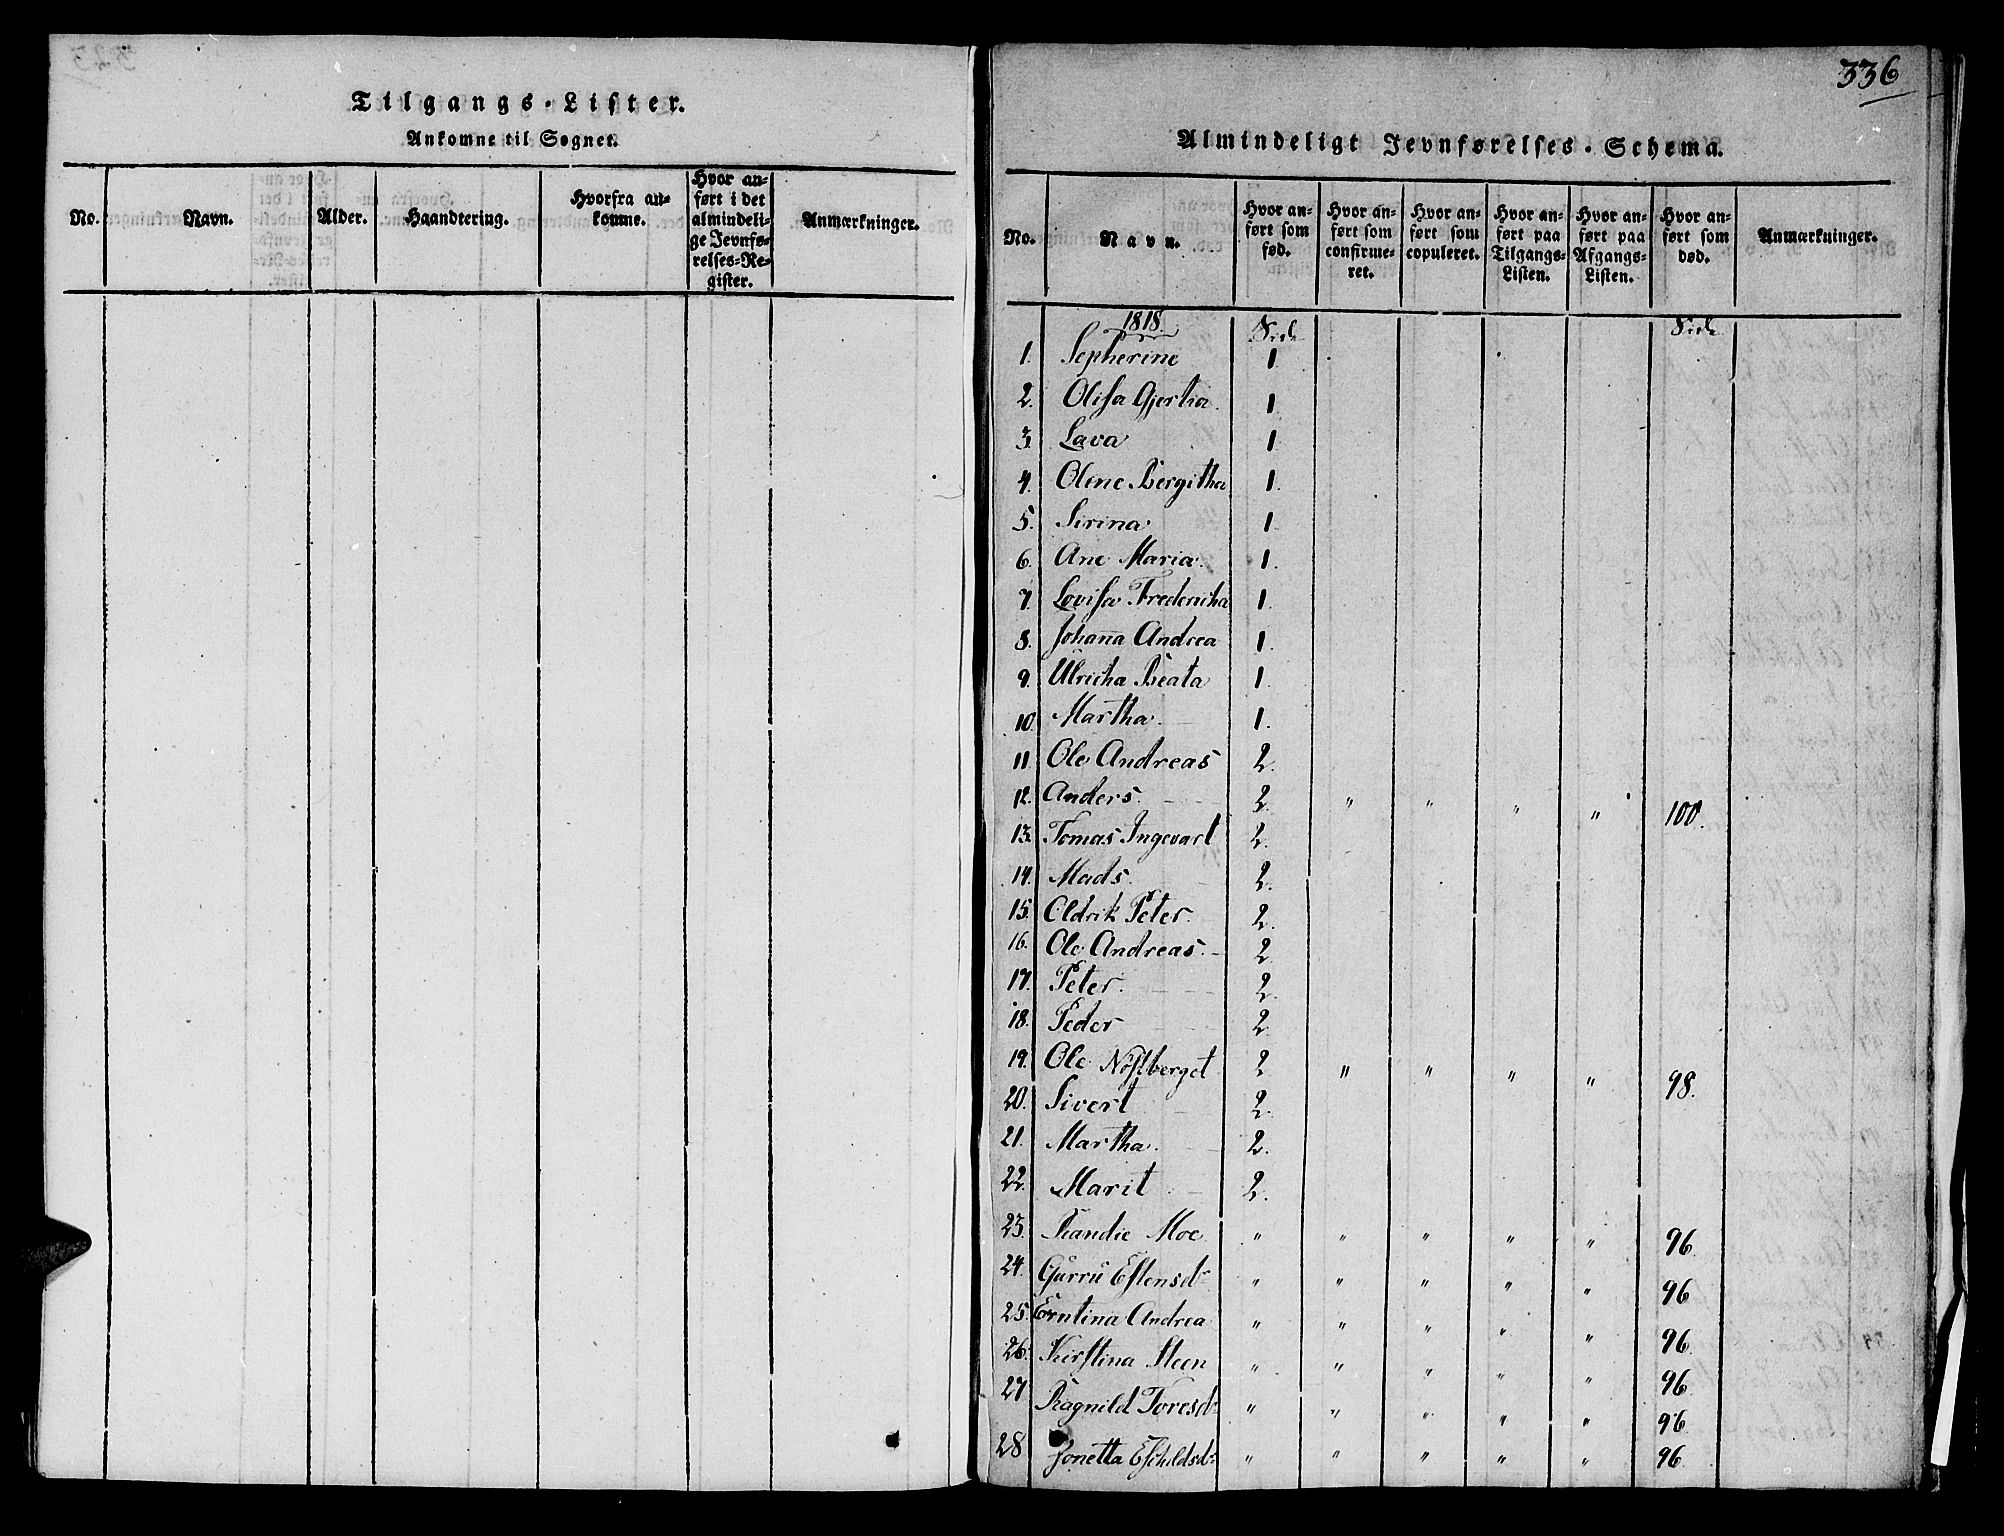 Tilgangs-Lister.
Ankomne til Sognet.
No. Navn. Alder. Haandtering. Hvorfra an-
komne. Hvor an-
ført i det
almindeli-
ge Jevnfø-
relses-Re-
gister. Anmærkninger.
336
Almindeligt Jevnførelses-Schema.
No. Navn. Hvor an-
ført som
fød. Hvor an-
ført som
confirme-
ret. Hvor an-
ført som
copuleret. Hvor an-
ført paa
Tilgangs-
Listen. Hvor an-
ført paa
Afgangs-
Listen. Hvor an-
ført som
død. Anmærkninger.
1818. Side Side
1. Sepherine 1
2. Olisa Gjertha. 1.
3. Lava 1
4. Oline Bergitha 1.
5. Sirina 1.
6. Ane Maria. 1.
7. Lovisa Fredericha 1.
8. Johanna Andrea 1.
9. Ulricha Beata 1.
10. Martha. 1.
11. Ole Andreas 2.
12. Anders. 2. " " " " 100.
13. Tomas Ingevart 2.
14. Mads. 2.
15. Oldrik Peter. 2.
16. Ole Andreas. 2.
17. Peter. 2.
18. Peder 2.
19. Ole Nöstberget 2 " " " " 98.
20. Sivert 2.
21. Martha. 2.
22. Marit 2.
23. Randie Moe " " " " " 96.
24. Gurru Estensd " " " " " 96
25. Erntina Andrea " " " " " 96.
26. Kirstina Steen " " " " " 96.
27 Ragnild Toresd " " " " " 96.
28 Jonetta Eschildsd " " " " " 96.